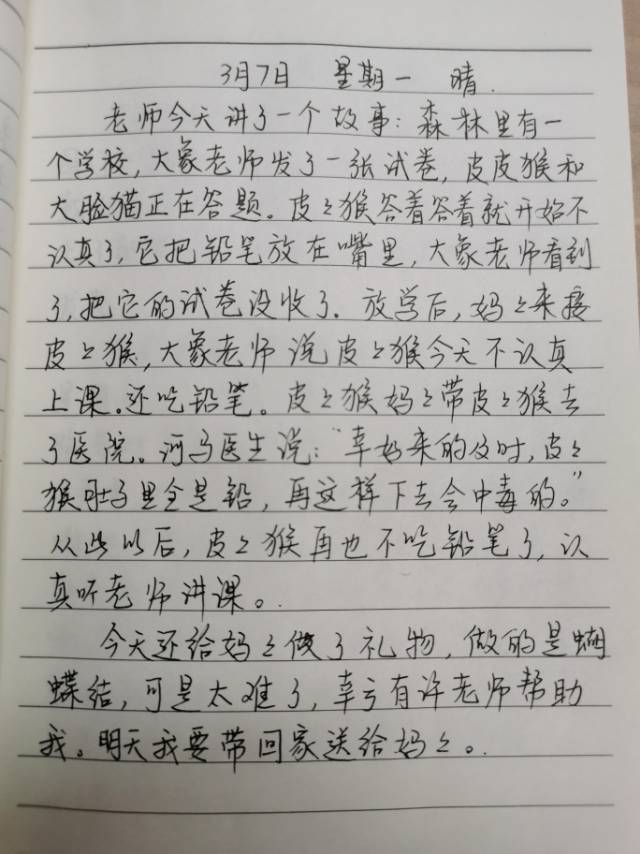 3月7日 星期一 晴.
老师今天讲了一个故事：森林里有一
个学校，大象老师发了一张试卷，皮皮猴和
大脸猫正在答题。皮々猴答着答着就开始不
认真了，它把铅笔放在嘴里，大象老师看到
了，把它的试卷没收了．放学后，妈々来接
皮々猴，大象老师说皮々猴今天不认真
上课。还吃铅笔。皮々猴妈々带皮々猴去
了医院。河马医生说：“幸好来的及时，皮々
猴肚子里全是铅，再这样下去会中毒的。”
从此以后，皮々猴再也不吃铅笔了，认
真听老师讲课。
今天还给妈々做了礼物，做的是蝴
蝶结，可是太难了，幸亏有许老师帮助
我。明天我要带回家送给妈々。